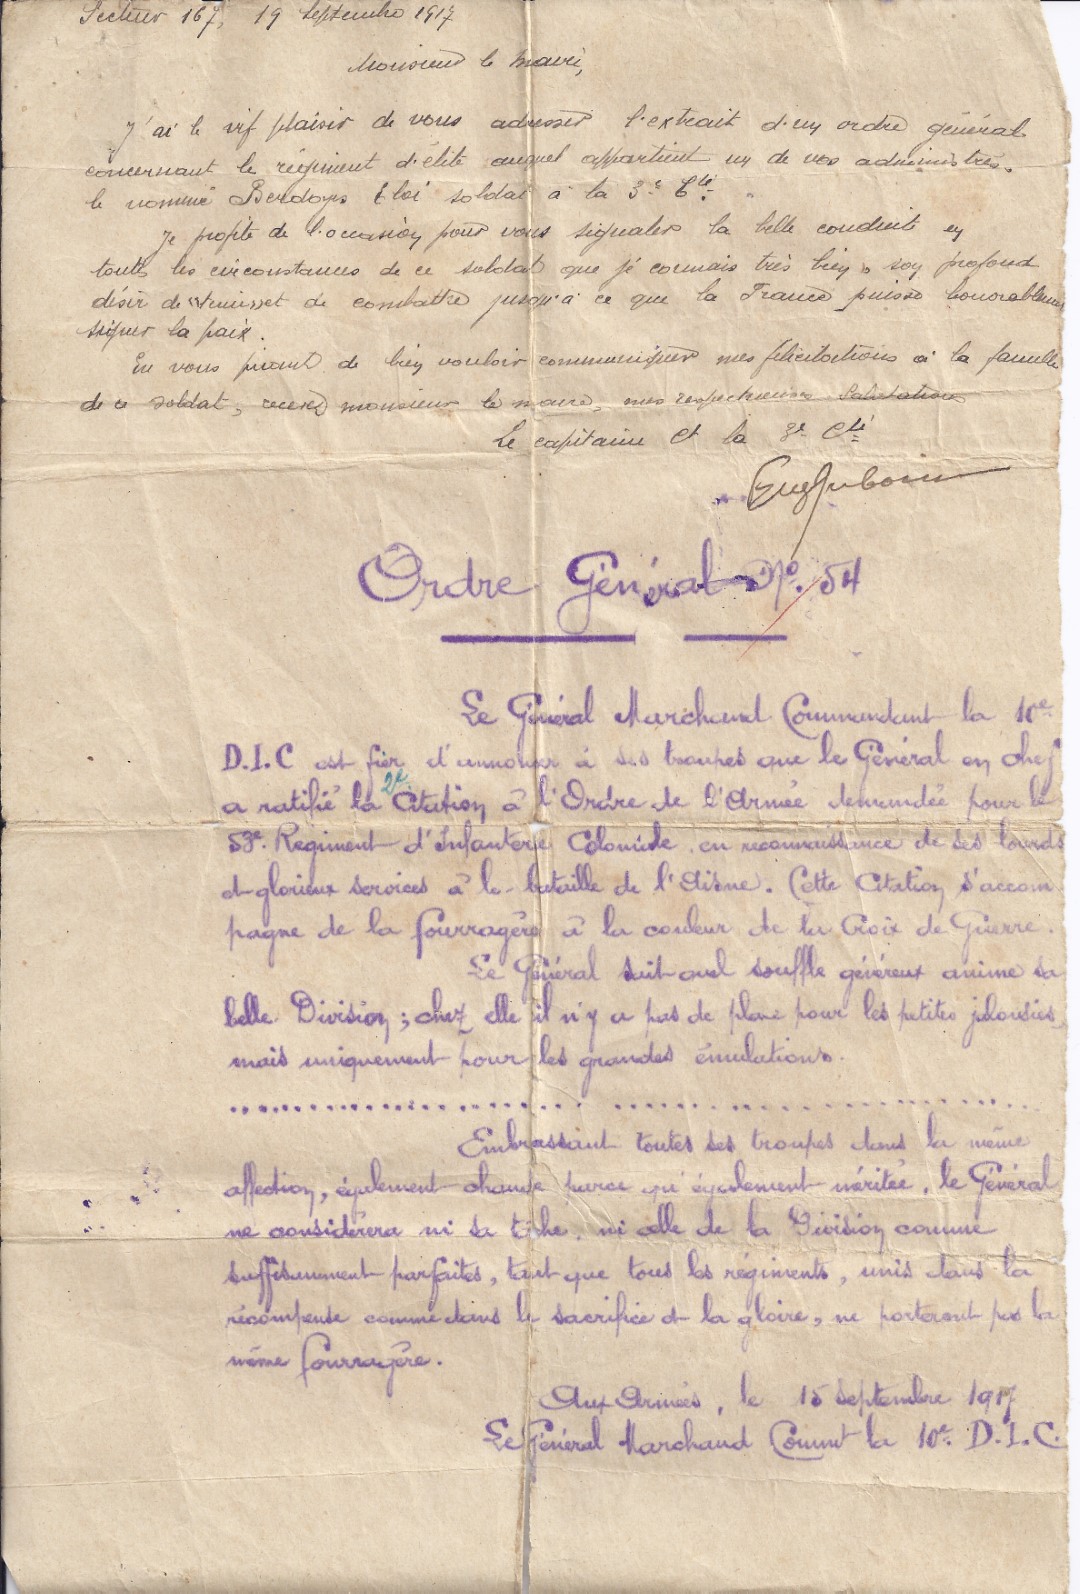 Secteur 167, 19 Septembre 1917
Monsieur le Maire,
J'ai le vif plaisir de vous adresser l'extrait d'un ordre général
concernant le régiment d'élite auquel appartient un de vos administrés,
le nommé Eloi soldat à la 3e Cie.
Je profite de l'occasion pour vous signaler la belle conduite en
toutes les circonstances de ce soldat que je connais très bien, son profond
désir de et de combattre jusqu'à ce que la France puisse honorablement
signer la paix.
En vous priant de bien vouloir communiquer mes félicitations à la famille
de ce soldat, recevez monsieur le maire, mes respectueuses Salutations
Le capitaine Ct la 3e Cie
Ordre Général No. 54
Le Général Marchand Commandant la 10e
D.I.C est fier d'annoncer à ses troupes que le Général en chef
a ratifié la 2e Citation à l'Ordre de l'Armée demandée pour le
53e. Regiment d'Infanterie Coloniale, en reconnaissance de ses lourds
et glorieux services à la bataille de l'Aisne. Cette Citation s'accom
pagne de la fourragère à la couleur de la Croix de Guerre.
Le Général sait quel souffle généreux anime sa
belle Division ; chez elle il n'y a pas de place pour les petites jalousies,
mais uniquement pour les grandes émulations.
........................................
Embrassant toutes ses troupes dans la même
affection, également chaude parce qu'également méritée, le Général
ne considérera ni sa tâche, ni celle de la Division comme
suffisamment parfaites, tant que tous les régiments, unis dans la
récompense comme dans le sacrifice et la gloire, ne porteront pas la
même fourragère.
Aux Armées, le 15 septembre 1917
Le Général Marchand Commt la 10e. D.I.C.